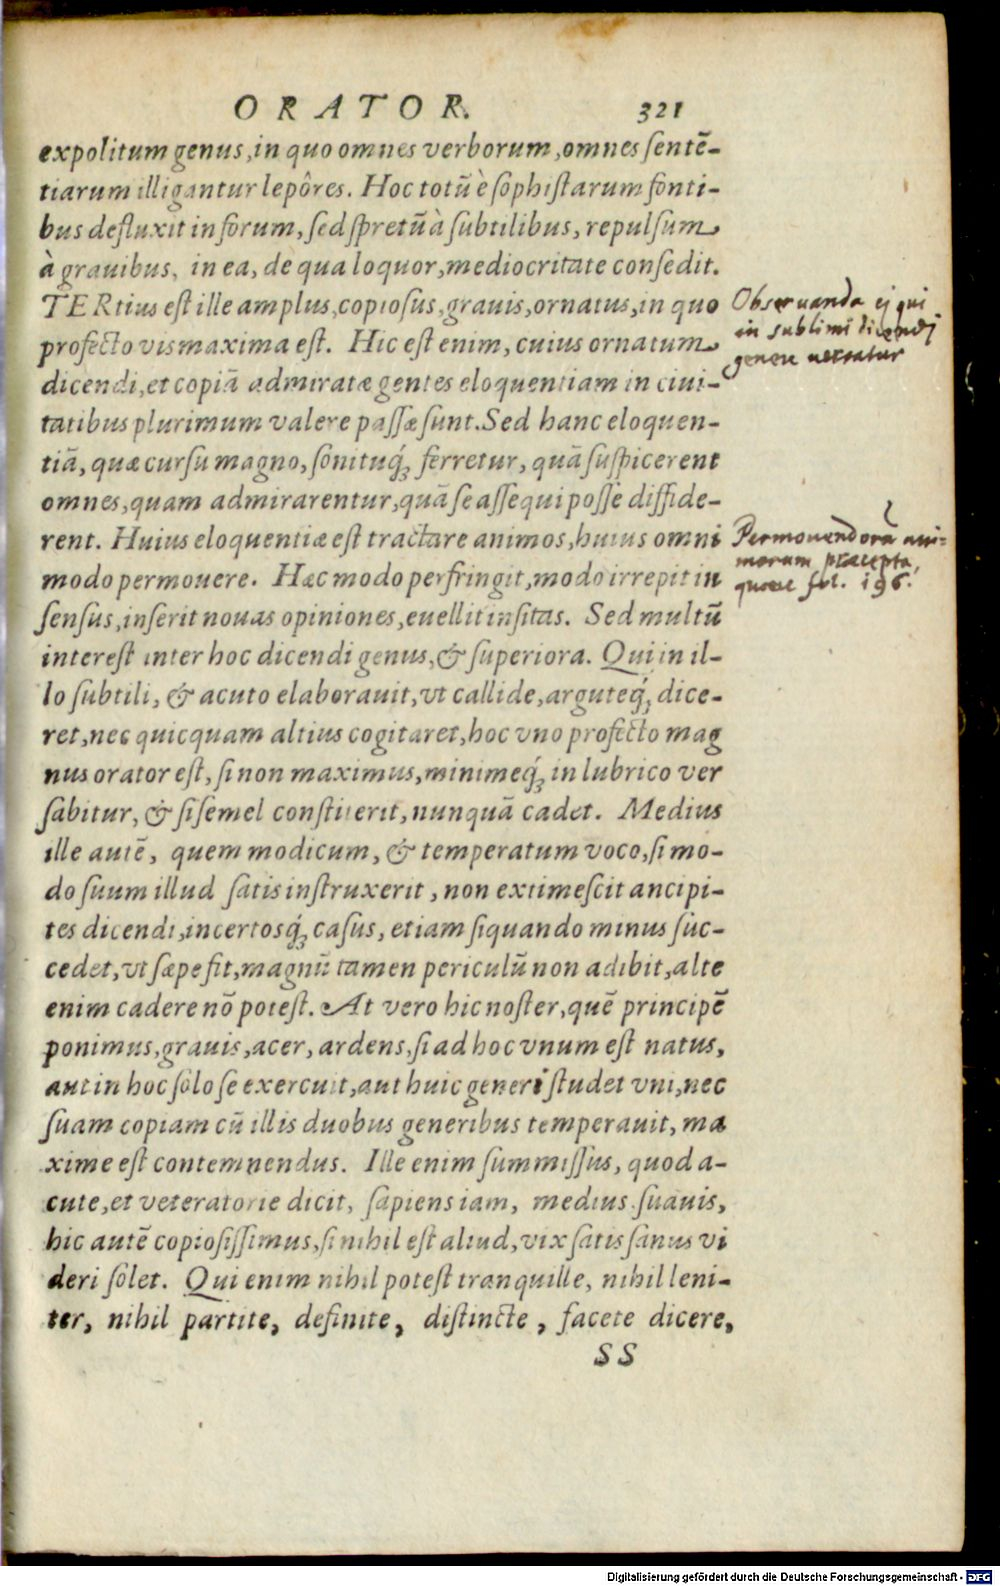 ORATOR. 321
expolitum genus, in quo omnes verborum, omnes sentē-
tiarum illigantur lepôres. Hoc totū è sophistarum fonti-
bus defluxit in forum, sed spretū à subtilibus, repulsum
à grauibus, in ea, de qua loquor, mediocritate consedit.
TERtius est ille amplus, copiosus, grauis, ornatus, in quo
profecto vis maxima est. Hic est enim, cuius ornatum
dicendi, et copiā admiratæ gentes eloquentiam in ciui-
tatibus plurimum valere passæ sunt. Sed hanc eloquen-
tiā, quæ cursu magno, sonituq́; ferretur, quā suspicerent
omnes, quam admirarentur, quā se assequi posse diffide-
rent. Huius eloquentiæ est tractare animos, huius omni
modo permouere. Hæc modo perfringit, modo irrepit in
sensus, inserit nouas opiniones, euellit insitas. Sed multū
interest inter hoc dicendi genus, & superiora. Qui in il-
lo subtili, & acuto elaborauit, vt callide, arguteq́; dice-
ret, nec quicquam altius cogitaret, hoc vno profecto mag
nus orator est, si non maximus, minimeq́; in lubrico ver
sabitur, & si semel constiterit, nunquā cadet. Medius
ille autē, quem modicum, & temperatum voco, si mo-
do suum illud satis instruxerit, non extimescit ancipi-
tes dicendi, incertosq́; casus, etiam siquando minus suc-
cedet, vt sæpe fit, magnū tamen periculū non adibit, alte
enim cadere nō potest. At vero hic noster, quē principē
ponimus, grauis, acer, ardens, si ad hoc vnum est natus,
aut in hoc solo se exercuit, aut huic generi studet vni, nec
suam copiam cū illis duobus generibus temperauit, ma
xime est contemnendus. Ille enim summissus, quod a-
cute, et veteratorie dicit, sapiens iam, medius suauis,
hic autē copiosissimus, si nihil est aliud, vix satis sanus vi
deri solet. Qui enim nihil potest tranquille, nihil leni-
ter, nihil partite, definite, distincte, facete dicere,
SS
Obseruanda ej qui
in sublimi dicendj
genere uersatur
Permouendorū ani-
morum præcepta,
quære fol. 196.
Digitalisierung gefördert durch die Deutsche Forschungsgemeinschaft - DFG